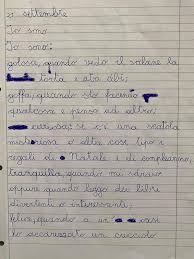 21 settembre
Io sono
Io sono:
golosa, quando vedo il salame la
torta e altri cibi;
goffa, quando sto facendo
qualcosa e penso ad altro;
curiosa, se c'è una scatola
misteriosa o altre cose tipo i
regali di Natale e di compleanno,
tranquilla, quando mi sdraio
oppure quando leggo dei libri
divertenti o interessanti;
felice, quando a un casi
ho accarezzato un cucciolo